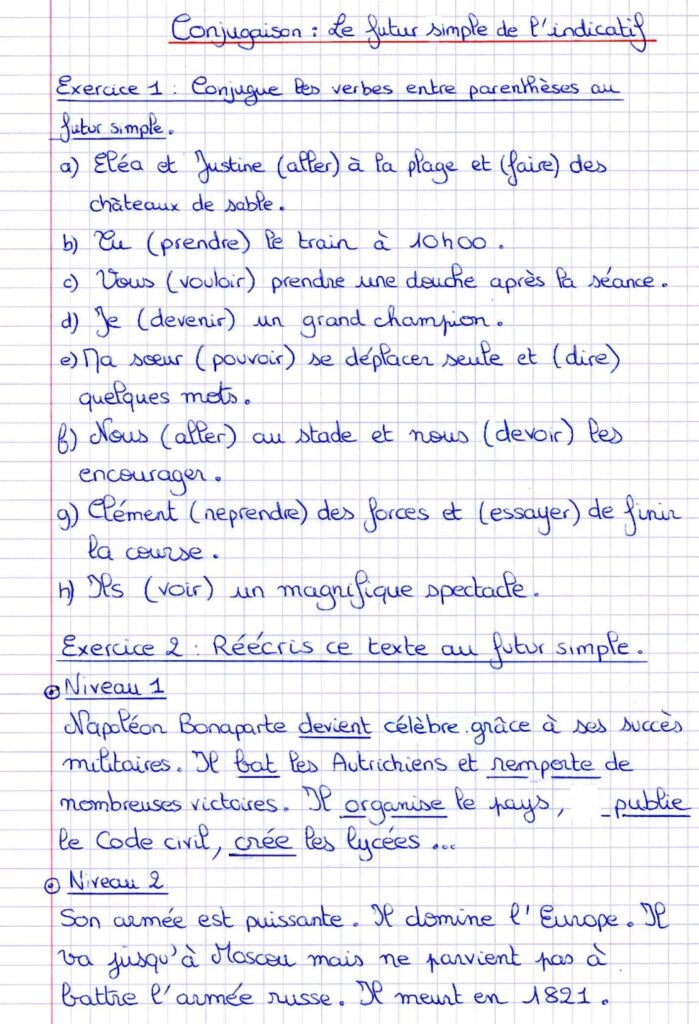 Conjugaison : Le futur simple de l'indicatif
Exercice 1 : Conjugue les verbes entre parenthèses au
futur simple.
a) Eléa et Justine (aller) à la plage et (faire) des
châteaux de sable.
b) Tu (prendre) le train à 10h00.
c) Vous (vouloir) prendre une douche après la séance.
d) Je (devenir) un grand champion.
e) Ma sœur (pouvoir) se déplacer seule et (dire)
quelques mots.
f) Nous (aller) au stade et nous (devoir) les
encourager.
g) Clément (reprendre) des forces et (essayer) de finir
la course.
h) Ils (voir) un magnifique spectacle.
Exercice 2 : Réécris ce texte au futur simple.
Niveau 1
Napoléon Bonaparte devient célèbre grâce à ses succès
militaires. Il bat les Autrichiens et remporte de
nombreuses victoires. Il organise le pays, publie
le Code civil, crée les lycées ...
Niveau 2
Son armée est puissante. Il domine l'Europe. Il
va jusqu'à Moscou mais ne parvient pas à
battre l'armée russe. Il meurt en 1821.